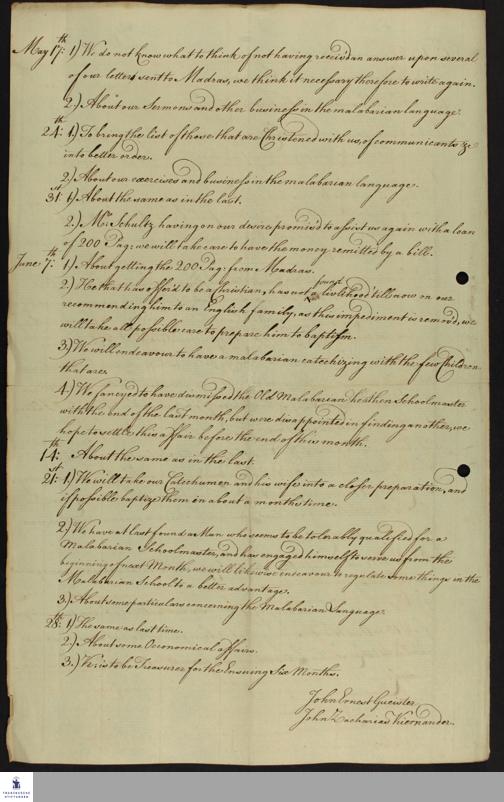 May 17th: 1) We do not know what to think of not having receiv'd an answer upon several
of our letters sent to Madras, we think it necessary therefore to write again.
2.) About our Sermons and other business in the malabarian language.
24th: 1) To bring the list of those that are Christened with us, of communicants &c
into better order.
2.) About our exercises and business in the malabarian language.
31st: 1) About the same as in the last.
2.) Mr. Schultz having on our desire promis'd to assist us again with a loan
of 200 Pag: we will take care to have the money remitted by a bill.
June: 7th: 1) About getting the 200 Pag: from Madras.
2.) He that has offer'd to be a Christian, has not found a livelihood till now on our
recommending him to an English family, as this impediment is remov'd, we
will take all possible care to prepare him to baptism.
3.) We will endeavour to have a malabarian catechizing with the few Children
that are.
4.) We fancyed to have dismissed the Old Malabarean heathen Schoolmaster
with the end of the last month, but were disappointed in finding another, we
hope to settle this affair before the end of this month.
14th: About the same as in the last.
21st: 1) We will take our Catechumen and his wife into a closer preparation, and
if possible baptize them in about a months time.
2.) We have at last found a Man who seems to be tolerably qualified for a
Malabarian Schoolmaster, and has engaged himself to serve us from the
beginning of next Month, we will likewise endeavour to regulate some things in the
Malabarian School to a better advantage.
3.) About some particulars concerning the Malabarian Language.
28th: 1) The same as last time.
2.) About some Oeconomical affairs.
3.) K: is to be Treasurer for the Ensuing Six Months.
John Ernest Gueister.
John Zacharias Kiernander.
FRANCKESCHE
STIFTUNGEN